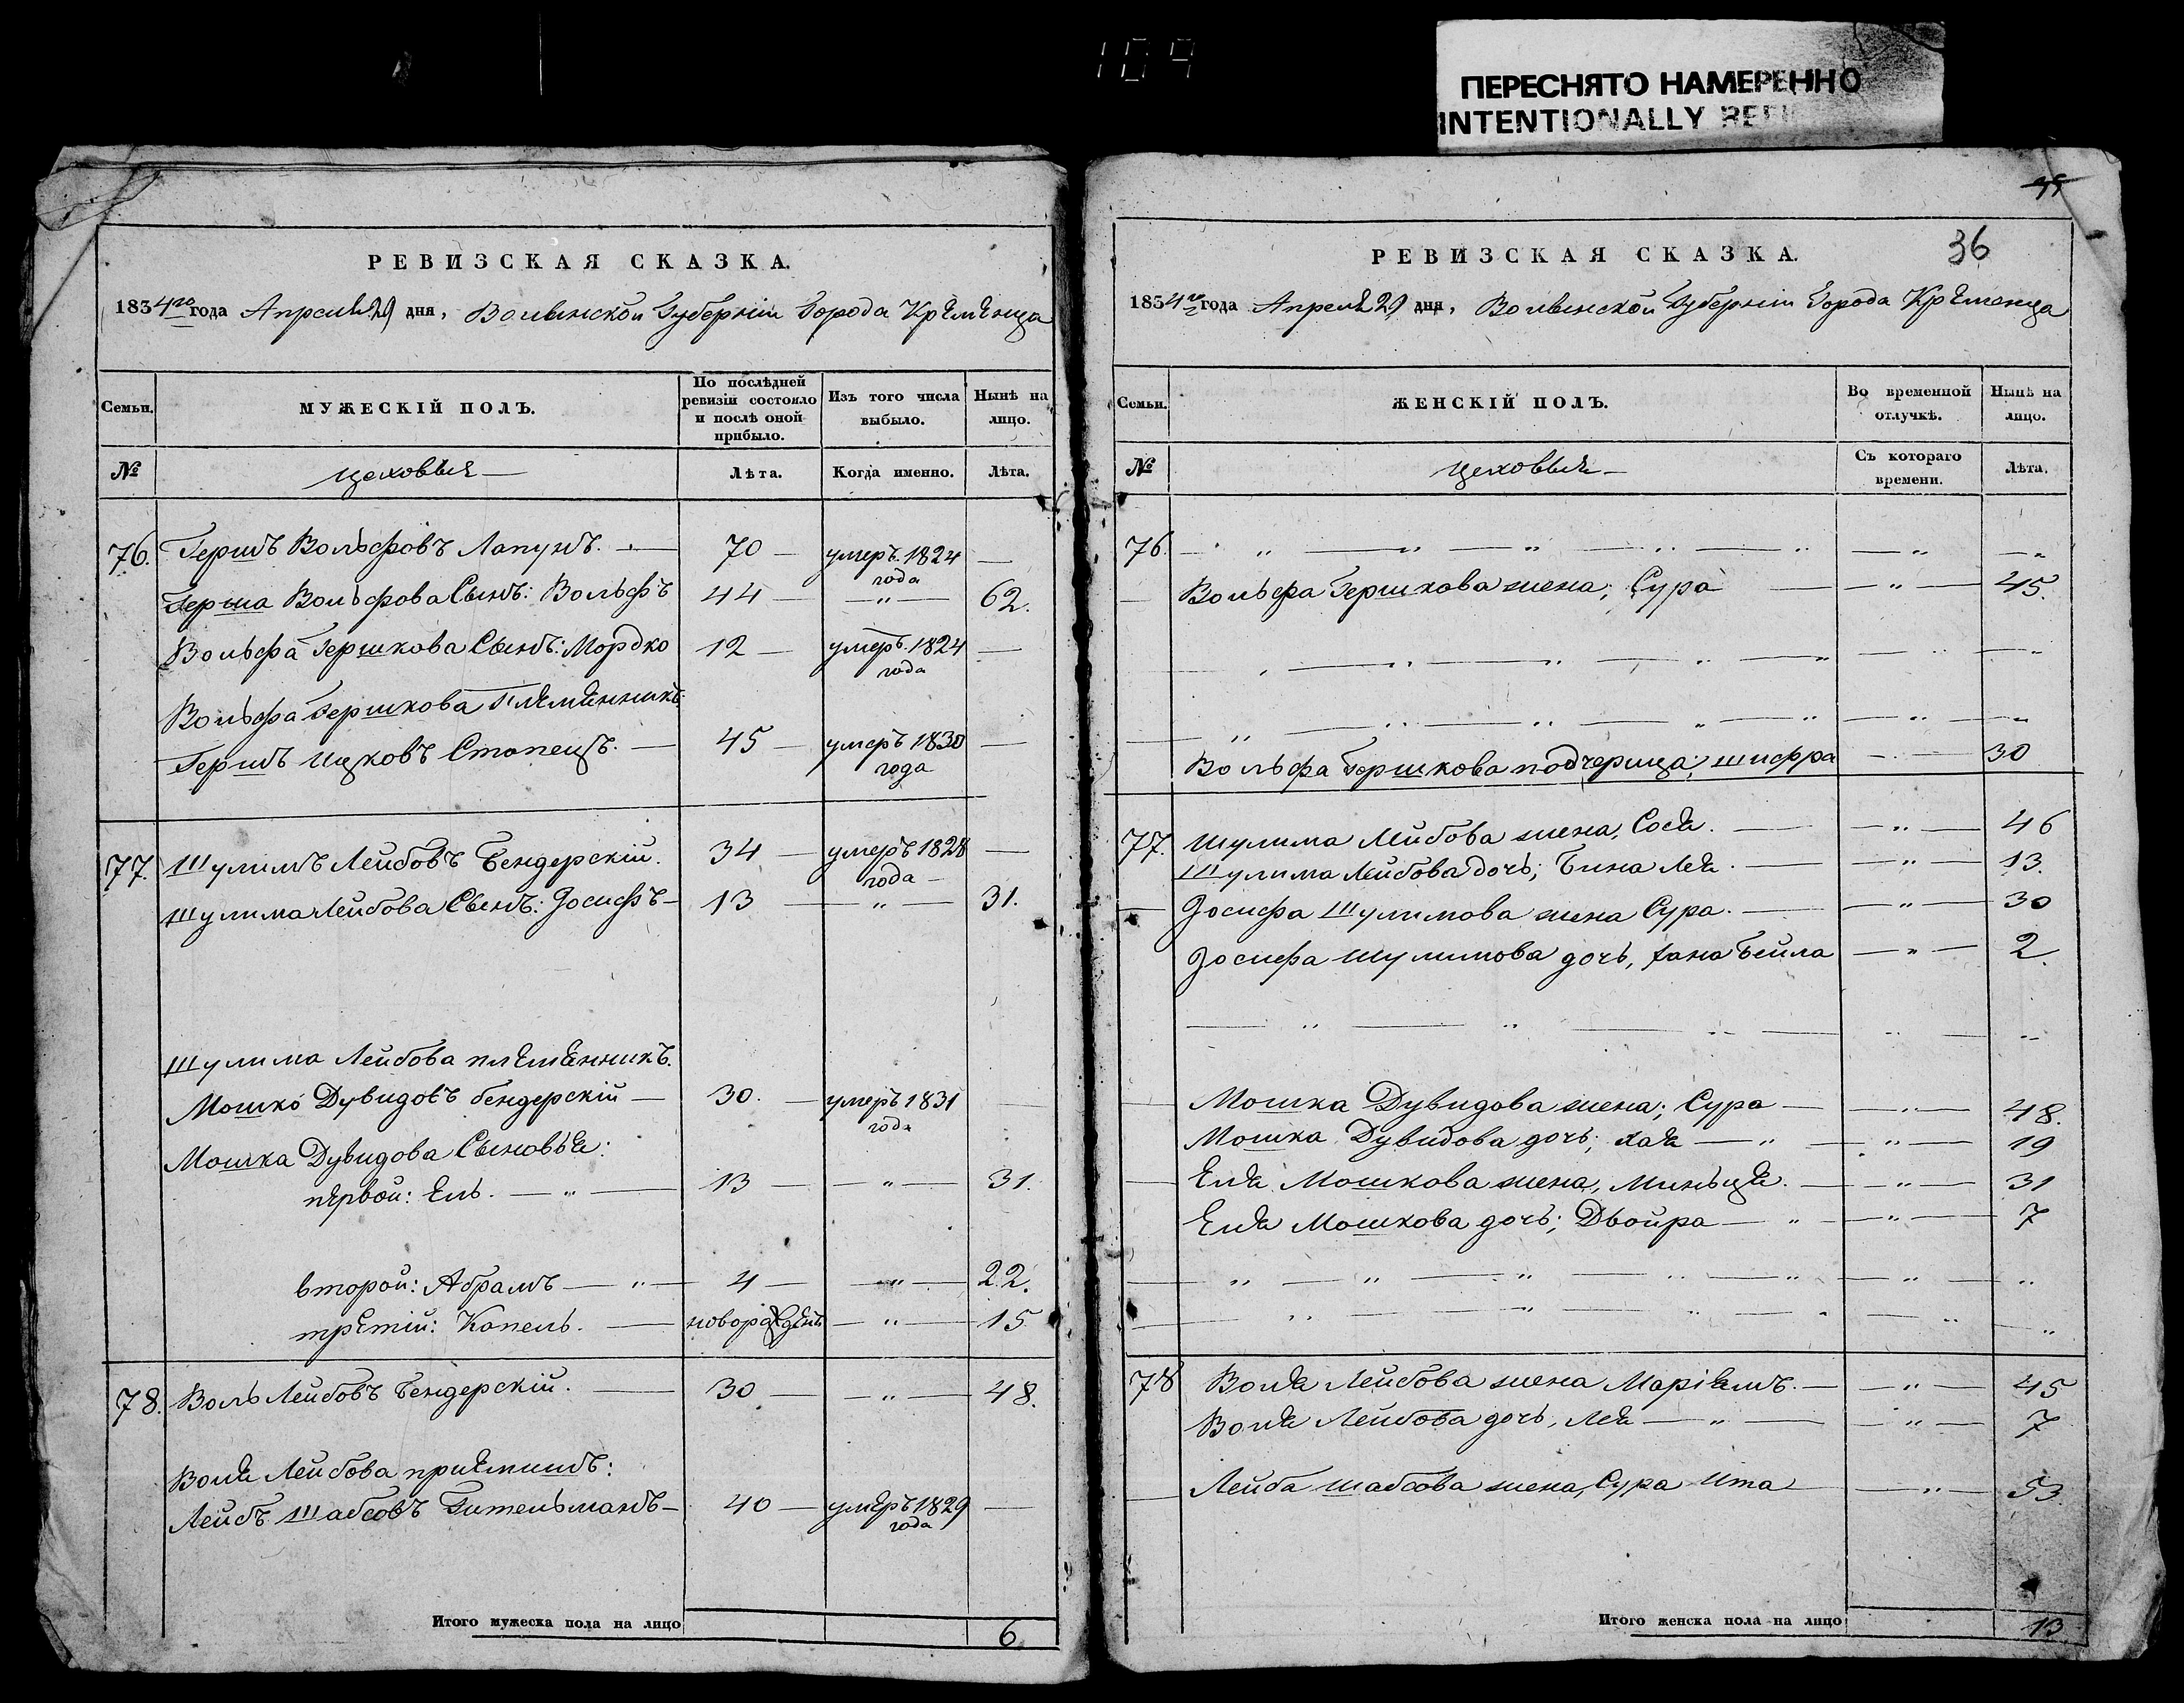 109
ПЕРЕСНЯТО НАМЕРЕННО
INTENTIONALLY
РЕВИЗСКАЯ СКАЗКА.
1834го года Апреля 29 дня, Волынской Губерніи Города Кременца
Семьи. МУЖЕСКІЙ ПОЛЪ. По послѣдней ревизіи состояло и послѣ оной прибыло. Изъ того числа выбыло. Нынѣ на лицо.
№ цеховые — Лѣта. Когда именно. Лѣта.
76. Гершъ Вольфовъ Лапунъ. — 70 — умеръ 1824 года —
Герша Вольфова Сынъ: Вольфъ 44 — — " — 62.
Вольфа Гершкова Сынъ: Мордко 12 — умеръ 1824 года —
Вольфа Гершкова Племенникъ:
Гершъ Ицковъ Стопецъ. — 45 — умеръ 1830 года —
77. Шулимъ Лейбовъ Бендерскій. 34 — умеръ 1828 года —
Шулима Лейбова Сынъ: Іосифъ — 13 — — " — 31.
Шулима Лейбова племенникъ.
Мошко Дувидовъ Бендерскій — 30. — умеръ 1831 года —
Мошка Дувидова Сыновья:
первой: Ель. — " — 13 — — " — 31.
второй: Абрамъ — " — 4 — — " — 22.
третій: Копель. — — " — 15
78.Воль Лейбовъ Бендерскій. — 30 — — " — 48.
Воля Лейбова приемышъ:
Лейбъ Шабсовъ Гительманъ — 40 — умеръ 1829 года —
Итого мужеска пола на лицо 6
35
36
РЕВИЗСКАЯ СКАЗКА.
1834го года Апреля 29 дня, Волынской Губерніи Города Кременца
Семьи. ЖЕНСКІЙ ПОЛЪ. Во временной отлучкѣ. Нынѣ на лицо.
№ цеховые — Съ котораго времени. Лѣта.
76. — " — " — " — " — " — " — — "
— Вольфа Гершкова жена; Сура — — " — 45.
Вольфа Гершкова подчерица; Шифра — 30
77. Шулима Лейбова жена, Сося. — — " — 46
Шулима Лейбова дочь; Бина Лея. — — " — 13.
— Іосифа Шулимова жена Сура. — — " — 30
Іосифа Шулимова дочь, Хана Бейла — " — 2.
— Мошка Дувидова жена; Сура — — " — 48.
Мошка Дувидова дочь; Хая — " — — " — 19
— Еля Мошкова жена, Миньця. — — " — 31
Еля Мошкова дочь; Двойра — " — — " — 7
78 Воля Лейбова жена Маріямъ. — — " — 45
Воля Лейбова дочь, Лея — " — — " — 7
— Лейба Шабсова жена, Сура Ита — " — 53.
Итого женска пола на лицо 13